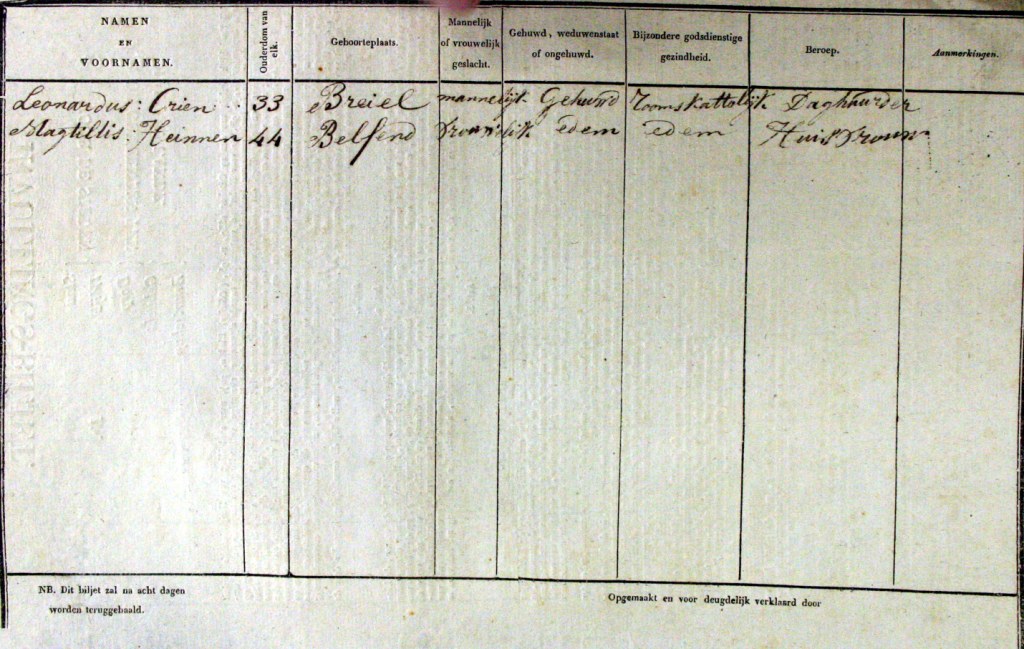 NAMEN EN VOORNAMEN. Ouderdom van elk. Geboorteplaats. Mannelijk of vrouwelijk geslacht. Gehuwd, weduwenstaat of ongehuwd. Bijzondere godsdienstige gezindheid. Beroep. Aanmerkingen.
Leonardus: Crien 33 Breiel mannelijk Gehuwd Roomskattolijk Daghuurder
Magtillis: Heinnen 44 Belfend vrouwlijk edem edem Huisvrouw
NB. Dit biljet zal na acht dagen
worden teruggehaald.
Opgemaakt en voor deugdelijk verklaard door